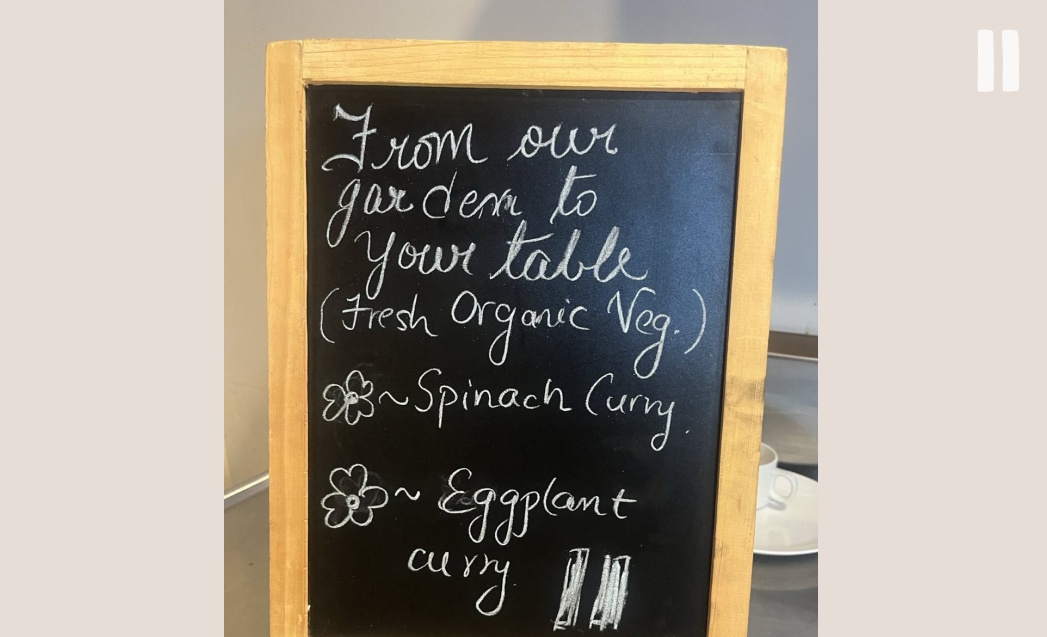 From our
garden to
your table
(Fresh Organic Veg.)
~ Spinach Curry.
~ Eggplant
curry